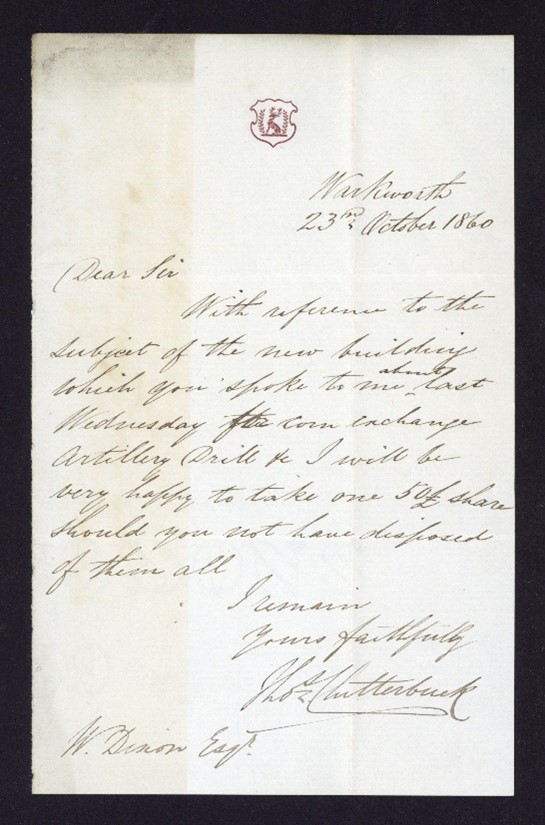 Warkworth
23rd October 1860
Dear Sir
With reference to the
subject of the new building
which you spoke to me about last
Wednesday for corn exchange
Artillery Drill &c I will be
very happy to take one 50£ share
should you not have disposed
of them all
I remain
Yours faithfully
Thos Clutterbuck
W. Dixon Esqr.